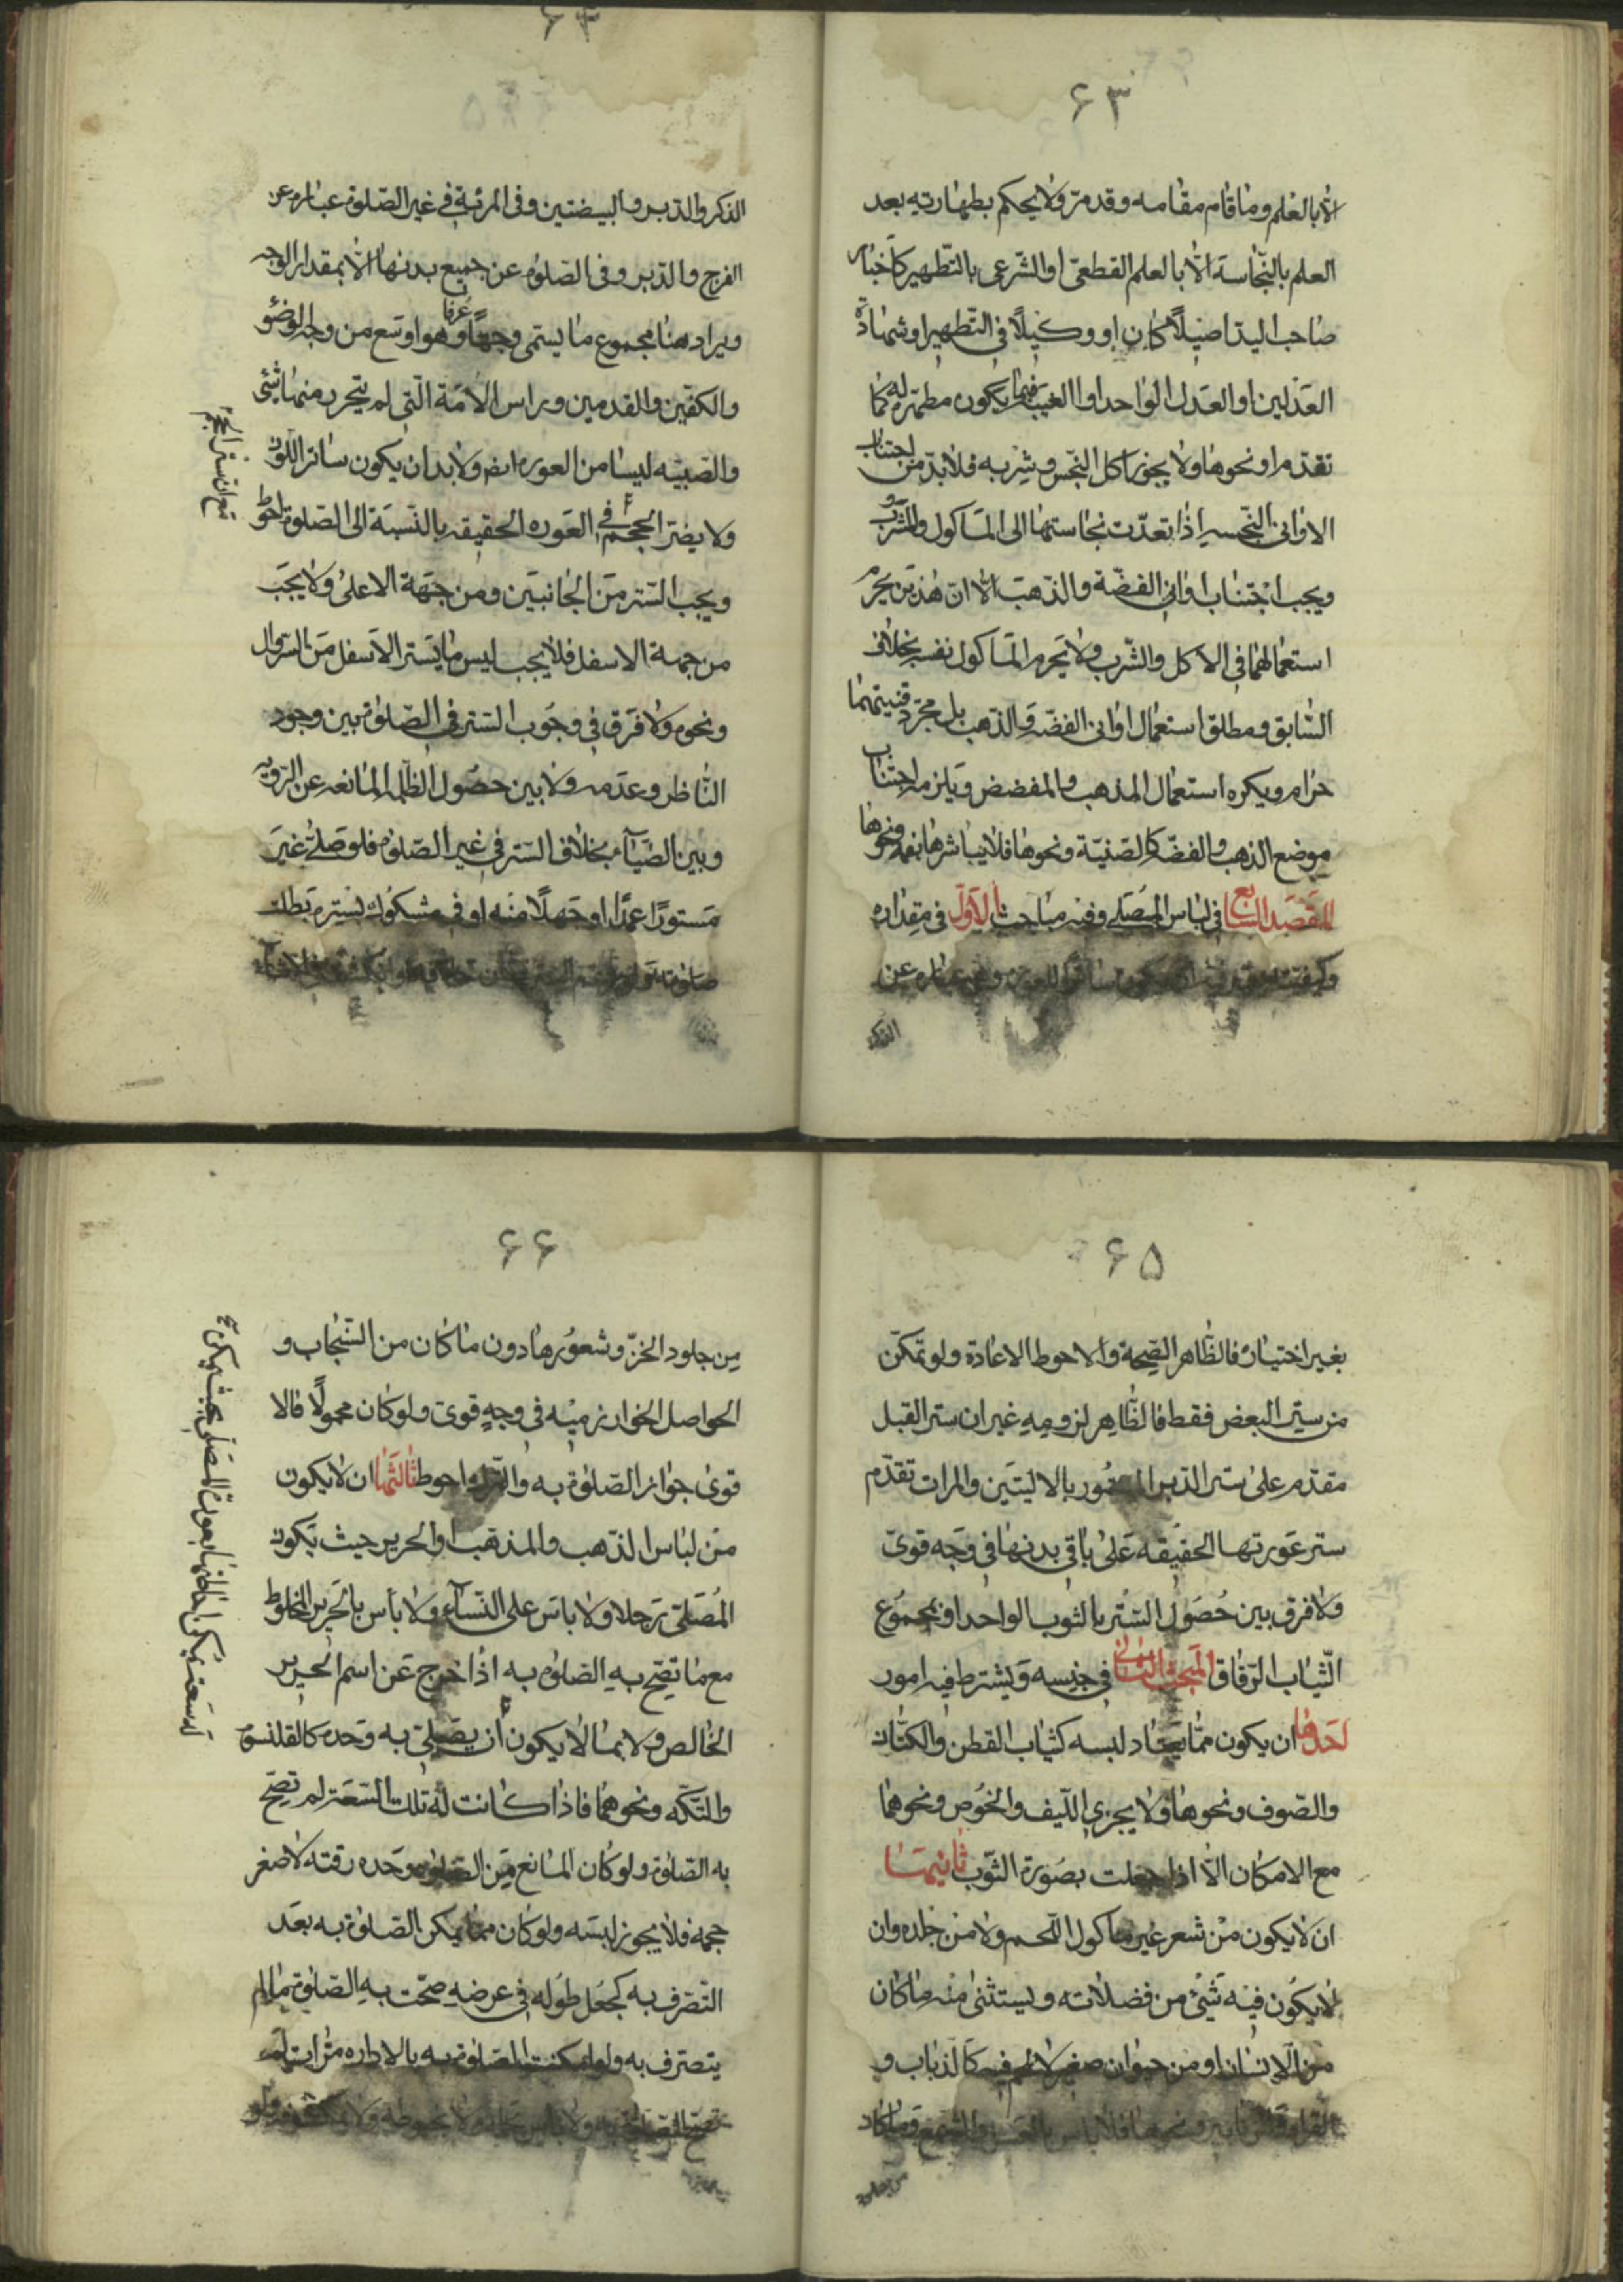 ٦٣
الا بالعلم وما قام مقامه وقد مرّ ولا يحكم بطهارته بعد
العلم بالنّجاسة الّا بالعلم القطعىّ او الشّرعى بالتّطهير كاخبار
صاحب اليد اصيلًا كان او وكيلًا فى التّطهير او شهادة
العدلين او العدل الواحد او الغيب فيما يكون مطهّره له كما
تقدّم او نحوها ولا يجوز اكل النّجس وشربه فلا بدّ من اجتناب
الاوانى النّجسه اذا تعدّت نجاستها الى المأكول والمشروب
ويجب اجتناب اوانى الفضّة والذّهب الّا انّ هٰذين يحرم
استعمالهما فى الاكل والشّرب ولا يحرم المأكول نفسه بخلاف
السّابق ومطلق استعمال اوانى الفضّه والذّهب بل مجرّد قنيتهما
حرام ويكره استعمال المذهب والمفضض ويلزمه اجتناب
موضع الذهب والفضّه كالصّنيّة ونحوها فلا يباشرها بفمه ونحوها
المقصد السّابع فى لباس المصلّى وفيه مباحث الاوّل فى مقداره
وكيفيّته ان يكون ساترًا للعورة وهى عباره عن
الذكر
٦٤
الذكر والدّبر والبيضتين وفى المرئة فى غير الصّلوة عباره عن
الفرج والدّبر وفى الصّلوة عن جميع بدنها الّا بمقدار الوجه
ويراد هنا مجموع ما يسمّى وجهًا عرفا وهو اوسع من وجه الوضوء
والكفّين والقدمين وراس الامة الّتى لم يتحرر منها شئ
والصّبيّه ليسا من العوره ايضا ولا بد ان يكون ساتر اللّون
ولا يضرّ الحجم فى العوره الحقيقه بالنّسبة الى الصّلوة احوط
ويجب السّتر من الجانبين ومن جهة الاعلى ولا يجب
من جهة الاسفل فلا يجب لبس ما يستر الاسفل من السّروال
ونحوه ولا فرق فى وجوب السّتر فى الصّلوة بين وجود
النّاظر وعدمه ولا بين حصول الظّلمه المانعه عن الرّويه
وبين الضّياء بخلاف السّتر فى غير الصّلوة فلو صلّى غير
مستورًا عمدًا او جهلًا منه او فى مشكوك بستره بطلت
صلوته
٦٥
بغير اختياره فالظّاهر الصّحة والاحوط الاعادة ولو تمكّن
من ستر البعض فقط فالظّاهر لزومه غير ان ستر القبل
مقدّم على ستر الدّبر المستور بالاليتين والمرات تقدّم
ستر عورتها الحقيقه على باقى بدنها فى وجه قوىّ
ولا فرق بين حصول السّتر بالثوب الواحد او بمجموع
الثّياب الرّقاق المبحث الثانى فى جنسه ويشترط فيه امور
احدها ان يكون ممّا يعتاد لبسه كثياب القطن والكتّان
والصّوف ونحوها ولا يجزى اللّيف والخوص ونحوهما
مع الامكان الّا اذا جعلت بصورة الثّوب ثانيها
ان لا يكون من شعر غير مأكول اللّحم ولا من جلده وان
لا يكون فيه شئ من فضلاته ويستثنى منه ما كان
من الانسان او من حيوان صغير لا لحم فيه كالذّباب و
القراد والزّنابير ونحوها فلا باس بالعسل والشّمع وما كان
من جلود
٦٦
مِن جلود الخزّ وشعورها دون ما كان من السّنجاب و
الحواصل الخوارزميّه فى وجهٍ قوىّ ولو كان محمولًا فالا
قوى جواز الصّلوة به والتّرك احوط ثالثها ان لا يكون
من لباس الذّهب والمذهّب او الحرير حيث يكون
المصلّى رجلا ولا باس على النّساء ولا بأس بالحرير المخلوط
مع ما تصحّ به الصّلوة به اذا خرج عن اسم الحرير
الخالص ولا بما لا يكون أن يصلّى به وحده كالقلنسوة
والتّكّه ونحوهما فاذا كانت له تلك السّعة لم تصحّ
به الصّلوة ولو كان المانع من الصّلوة وحده رقته لا صغر
حجمه فلا يجوز لبسه ولو كان ممّا يمكن الصّلوة به بعد
التّصرّف به كجعل طوله فى عرضه صحّت به الصّلوة ما لم
يتصرّف به ولو امكنت الصّلوة به بالاداره مرّات لم